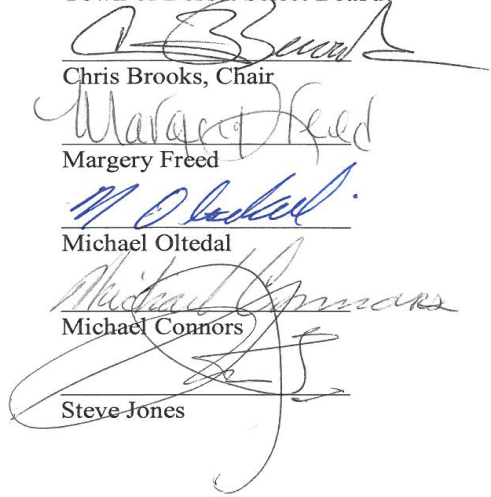 Chris Brooks, Chair
Margery Freed
Margery Freed
M Oltedal
Michael Oltedal
Michael Connors
Michael Connors
Steve Jones